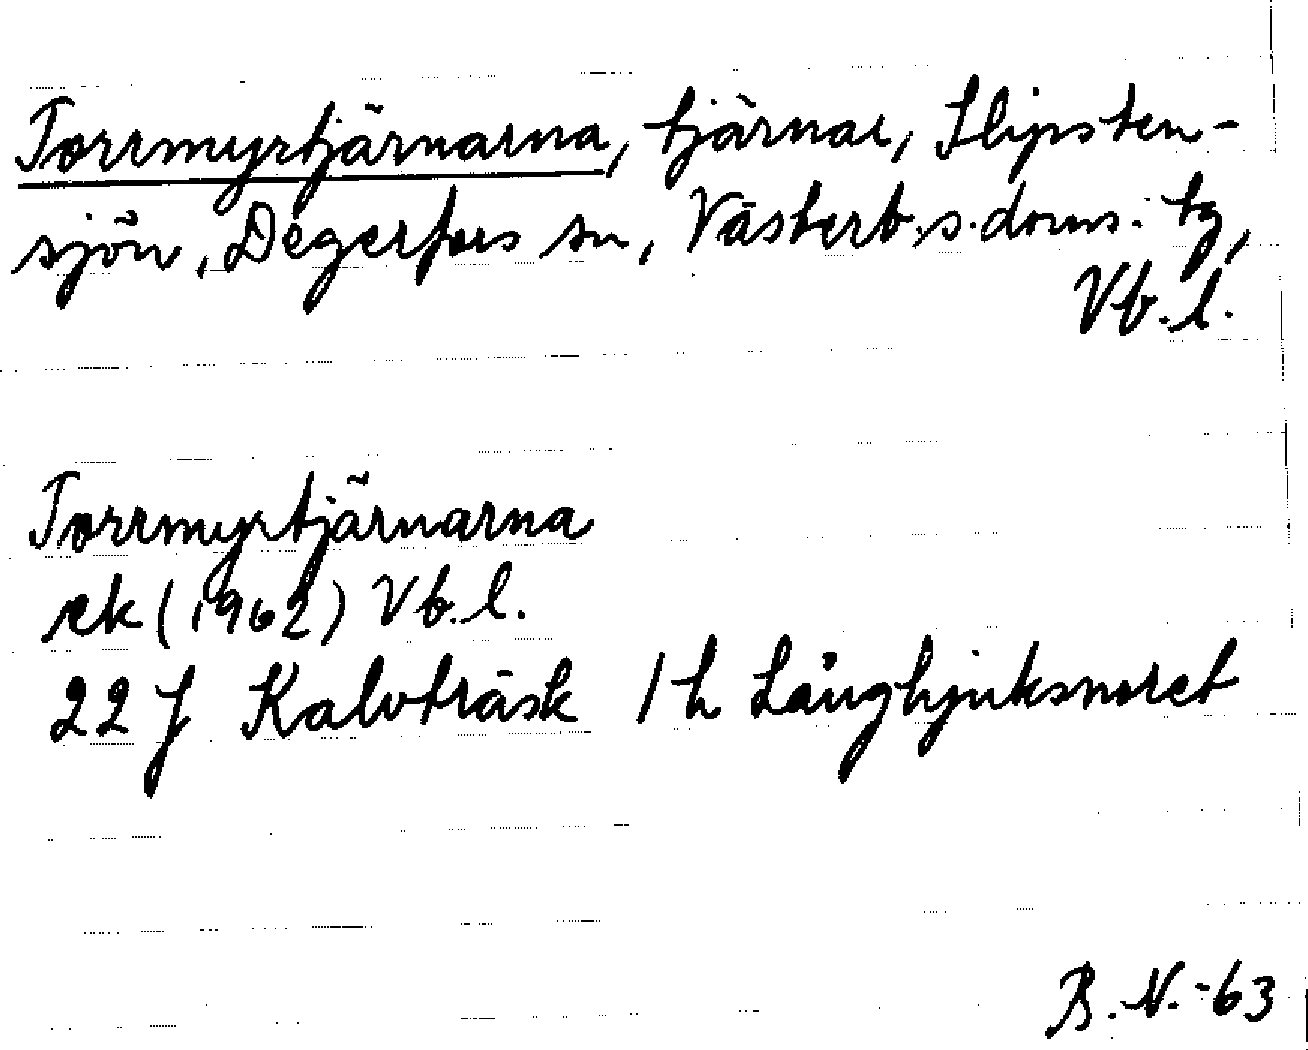 Torrmyrtjärnarna, tjärnar, Slipsten-
sjön, Degerfors sn, Västerb. s. doms. tg,
Vb. l.
Torrmyrtjärnarna
ek (1962) Vb. l.
22 J Kalvträsk 1 h Långhjuksnoret
B. N. -63